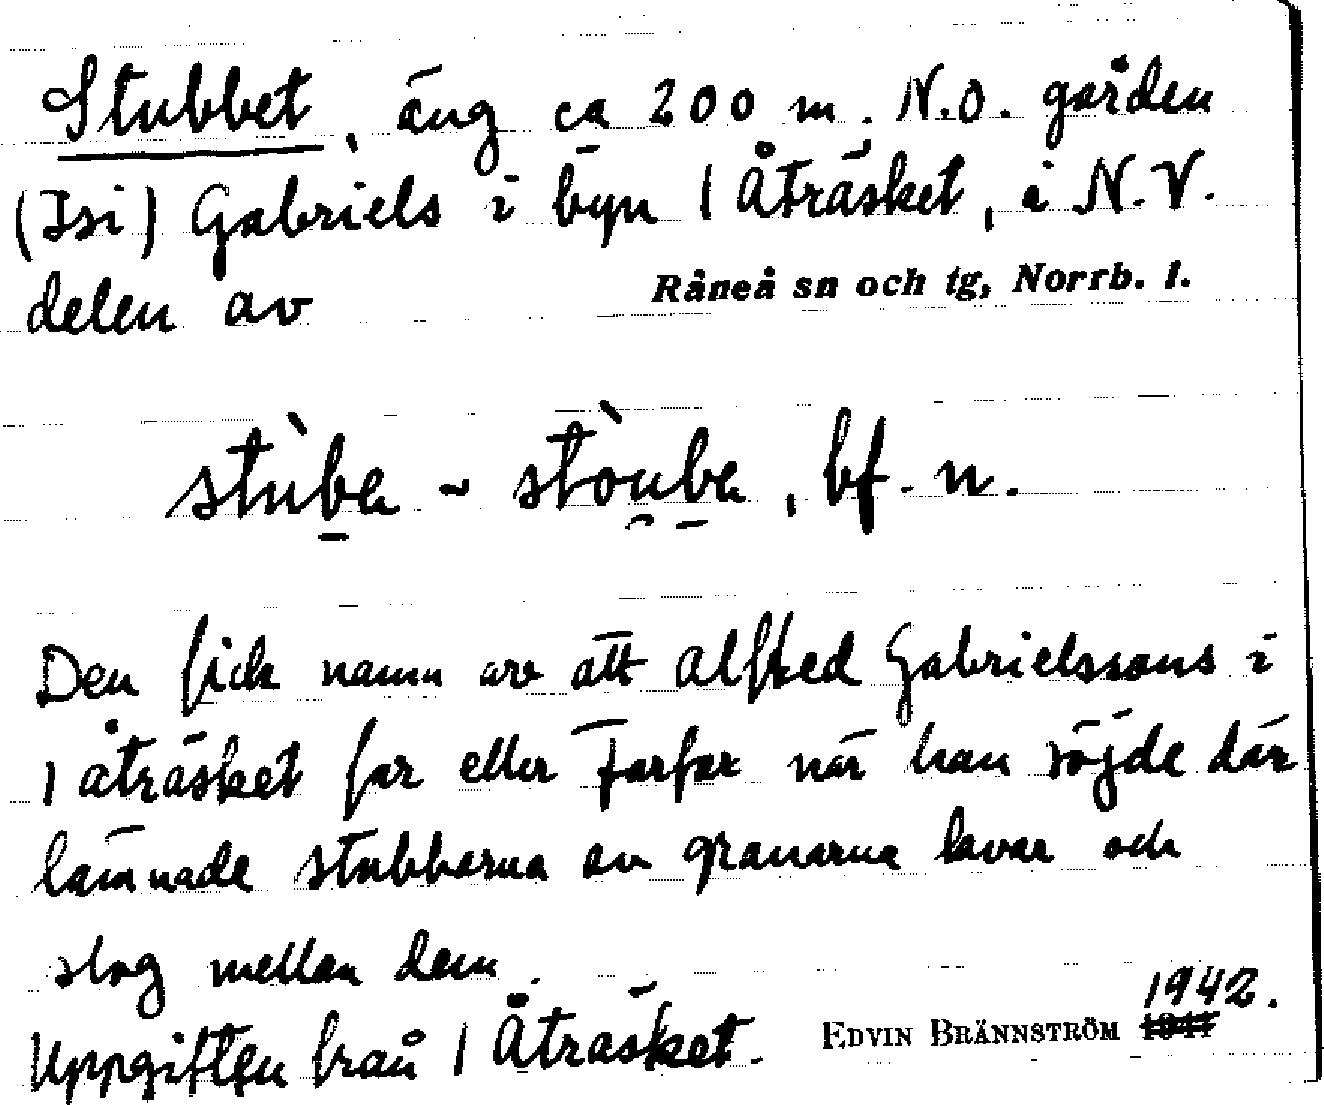 Stubbet, äng ca 200 m. N.O. gården
(Isi) Gabriels i byn 1 Åträsket, i N.V.
delen av Råneå sn och tg, Norrb. l.
stùba ~ stòuba, bf. n.
Den fick namn av att Alfred Gabrielssons i
1 Åträsket far eller farfar när han röjde där
lämnade stubbarna av granarna kvar och
slog mellan dem.
Uppgiften från 1 Åträsket. EDVIN BRÄNNSTRÖM 1942.